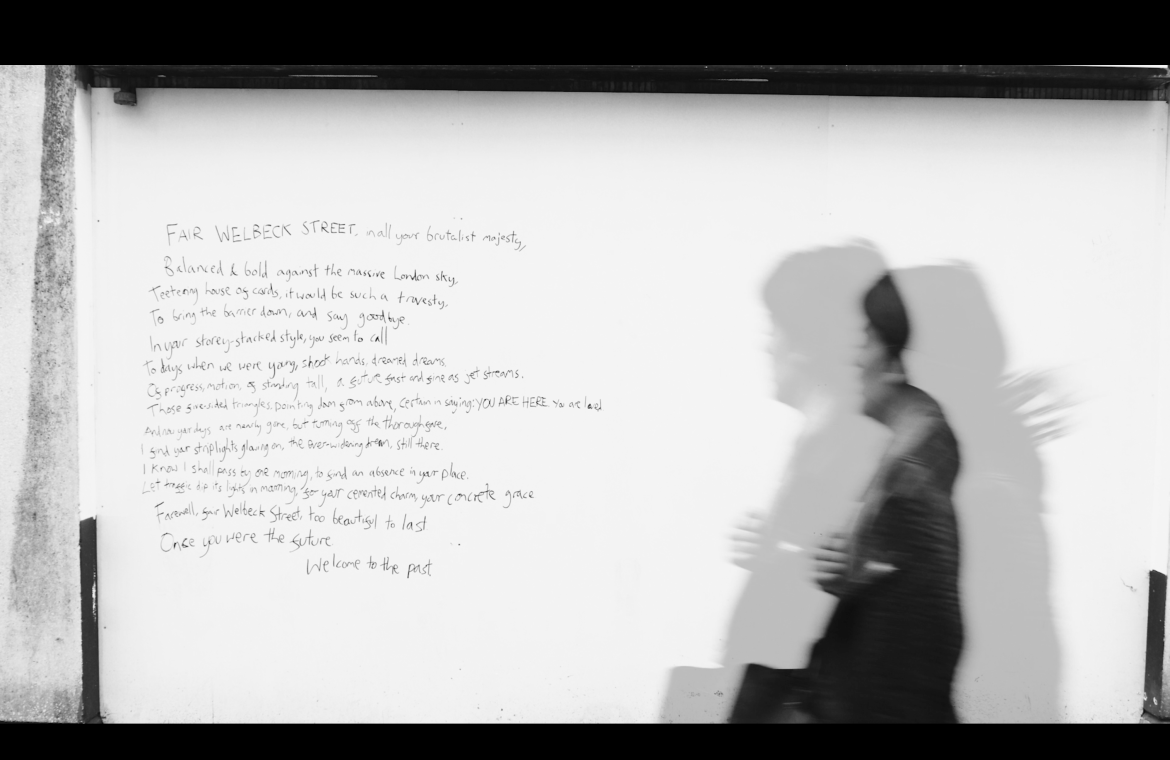 FAIR WELBECK STREET, in all your brutalist majesty,
Balanced & bold against the massive London sky,
Teetering house of cards, it would be such a travesty,
To bring the barrier down, and say goodbye.
In your storey-stacked style, you seem to call
To days when we were young, shook hands, dreamed dreams,
Of progress, motion, of standing tall, a future fast and fine as jet streams.
Those five-sided triangles, pointing down from above, certain in saying: YOU ARE HERE. You are loved
And now your days are nearly gone, but turning off the thoroughfare,
I find your striplights glowing on, the ever-widening dream, still there.
I know I shall pass by one morning, to find an absence in your place.
Let traffic dip its lights in mourning, for your cemented charm, your concrete grace
Farewell, fair Welbeck Street, too beautiful to last
Once you were the future
Welcome to the past